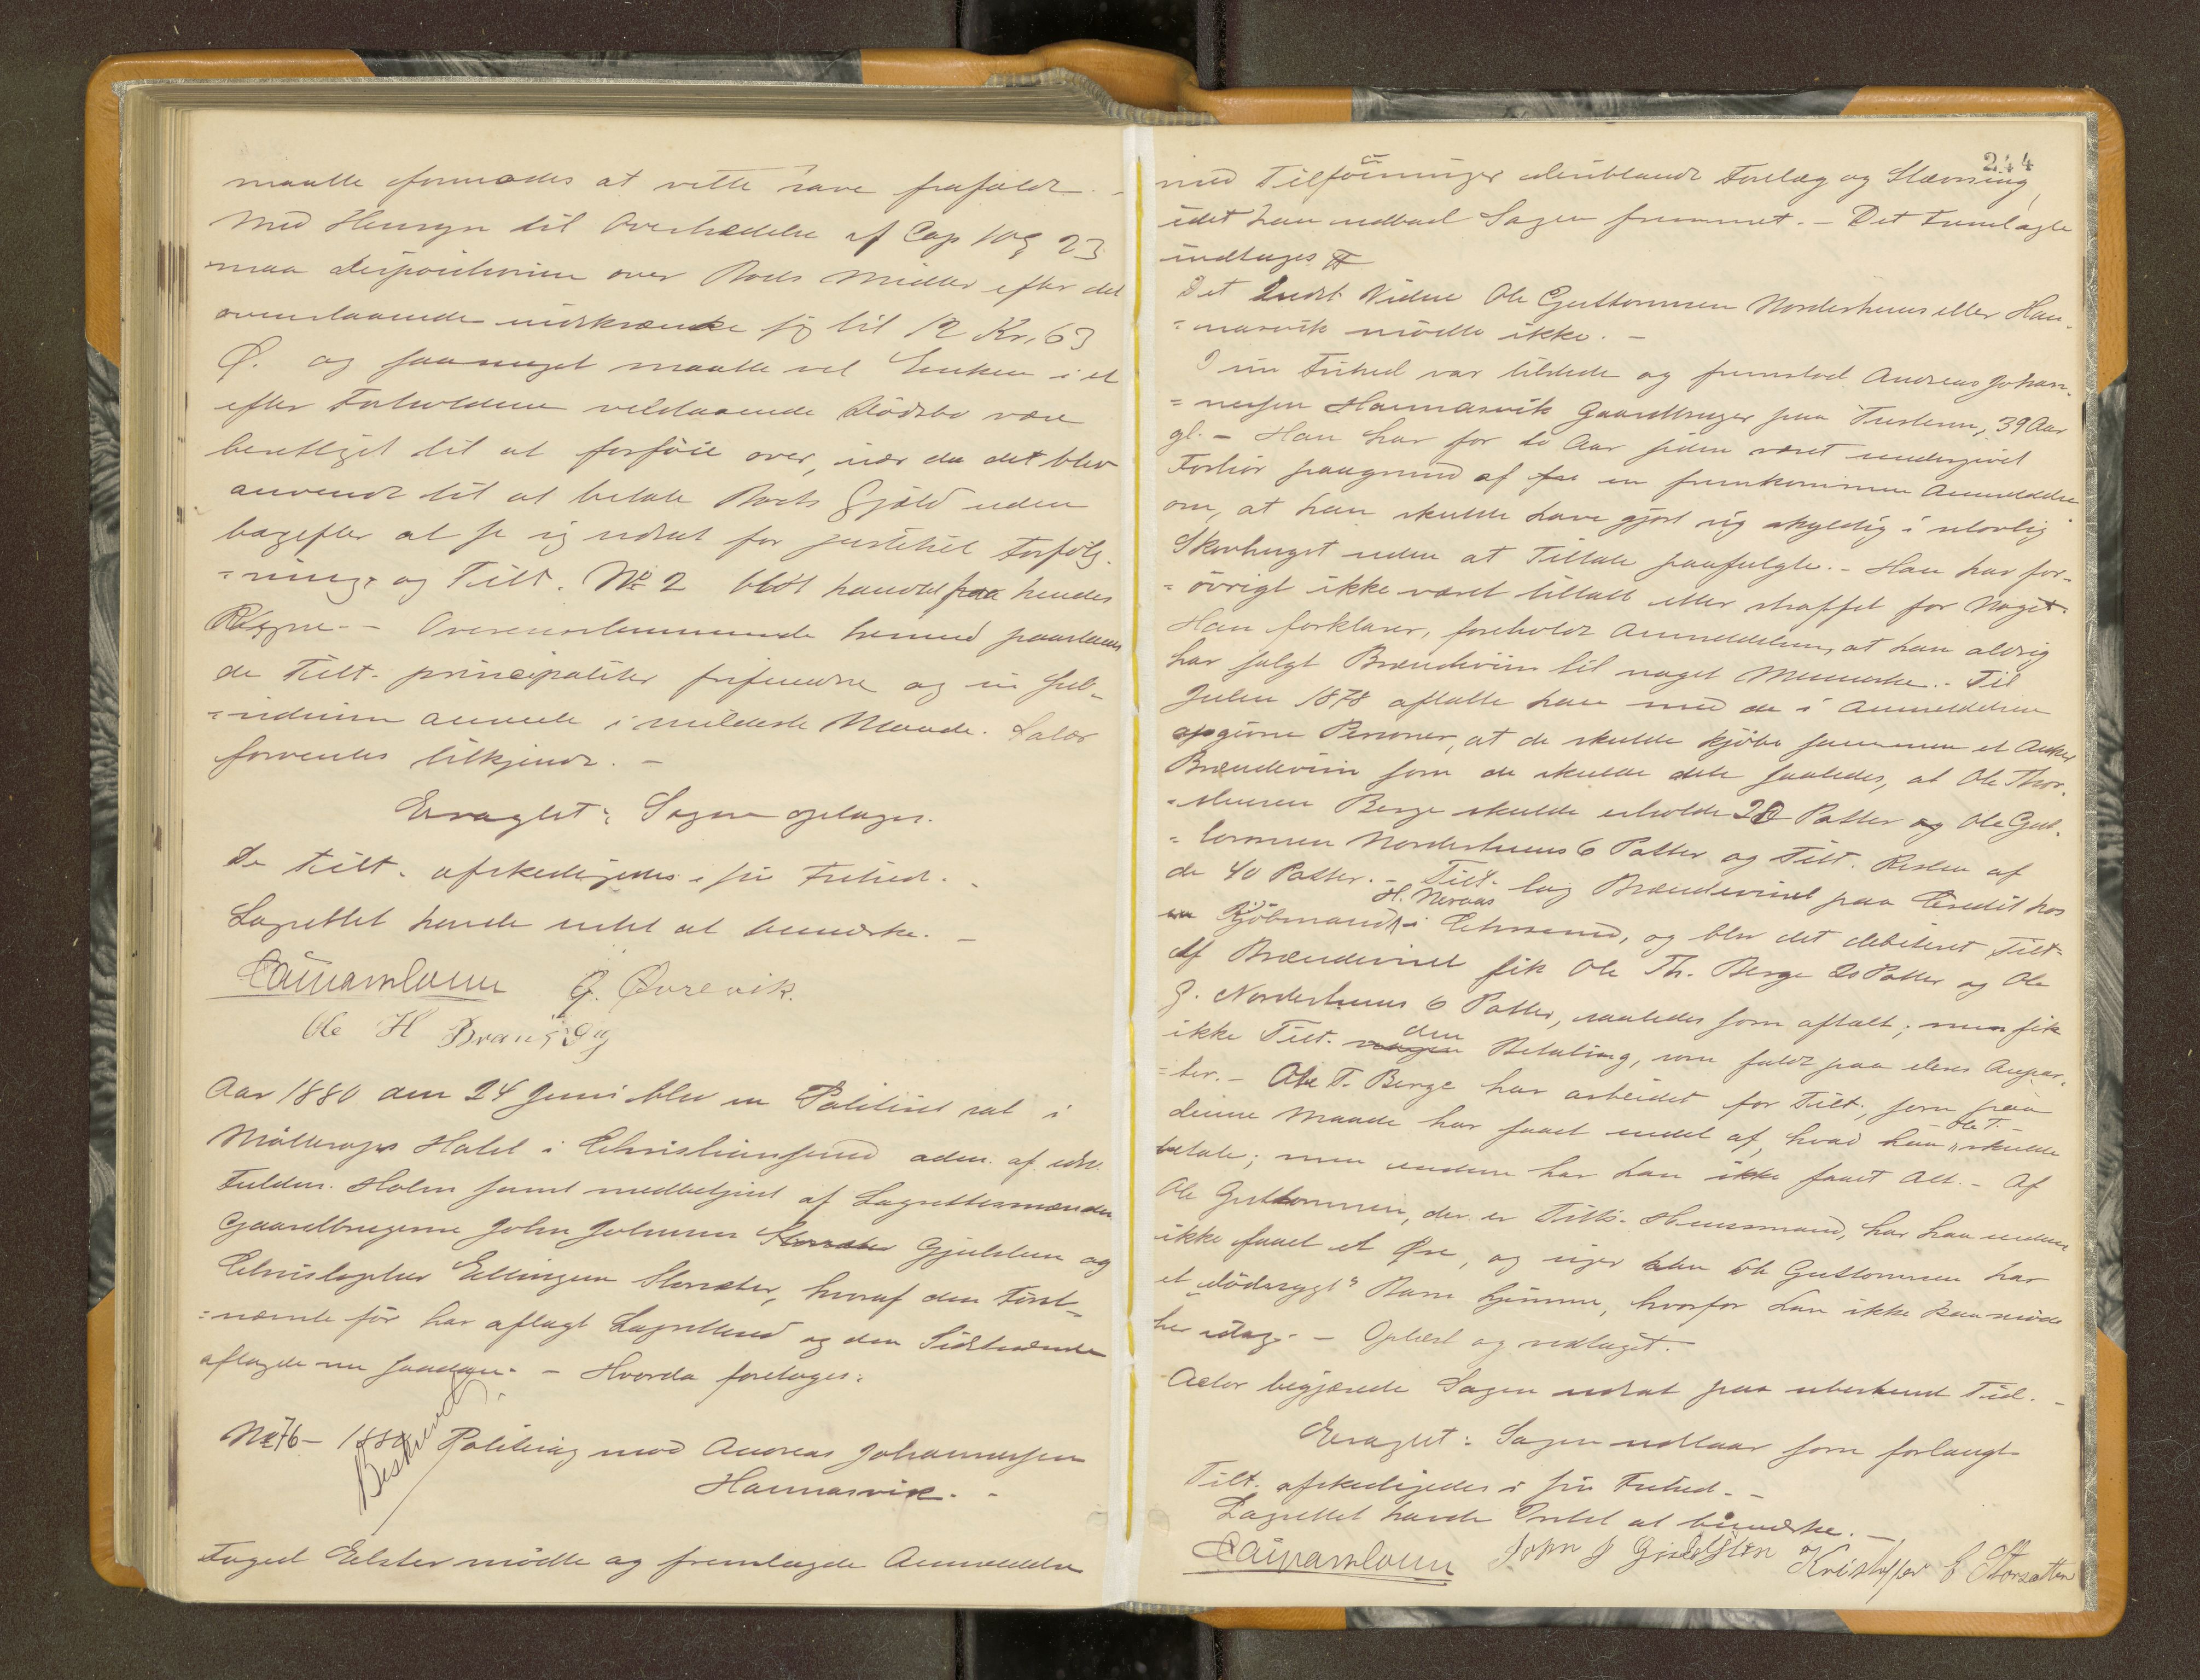 maatte formodes at rette have frafaldt. -
Med Hensyn til Overtrædelse af Cap 10 § 23
maa dispositionen over Boets Midler efter det
ovenstaaende indskrænke sig til 12 Kr. 63
Ø. og saameget maatte vel Enken i et
efter Forholdene velstaaende Dødsbo være
berettiget til at forføie over, naar da det blev
anvendt til at betale Boets Gjæld uden
bagefter at se sig udsat for justitiel Forfølg-
=ning, og Tilt. No 2 blot handlet paa hendes
Vegne. - Overensstemmende hermed paastaaes
de Tilt. principaliter frifundne og in sub-
=sidium anseede i mildeste Maade. Salær
forventes tilkjendt. -
Eragtet: Sagen optages.
De Tilt. afskedigedes i sin Frihed. -
Lagrettet havde intet at bemærke. -
G. Ørsevik.
Ole H Brandsøy
Aar 1880 den 24 Juni blev en Politiret sat i
Møllerops Hotel i Christiansund adm. af edsv.
Fuldm. Holm samt medbetjent af Lagrettesmændene
Gaardbrugerne John Johnsen Gjeldsten og
Christopher Ellingsen Storsæter, hvoraf den Først-
=nævnte før har aflagt Lagretteed og den Sidstnævnte
aflagde nu saadan. - Hvorda foretages:
No 76 - 1880 Politisag mod Andreas Johannessen
Beskrevet
Hannasvik. -
Foged Elster mødte og fremlagde Anmeldelse
244
med Tilføininger deriblandt Forelæg og Stævning,
idet han udbad Sagen fremmet. - Det Fremlagte
indtages
Det Indst. Vidne Ole Guttormsen Norderhuus eller Han-
=nasvik mødte ikke. -
I sin Frihed var tilstede og fremstod Andreas Johan-
=nessen Hannasvik Gaardbruger paa Tusteren, 39 Aar
gl. - Han har for to Aar siden været undergivet
Forhør paagrund af en fremkommen Anmeldelse
om, at han skulde have gjort sig skyldig i ulovlig
Skovhugst uden at Tiltale paafulgte. - Han har for-
=øvrigt ikke været tiltalt eller straffet for Noget.
Han forklarer, foreholdt Anmeldelsen, at han aldrig
har solgt Brændeviin til noget Menneske. - Til
Julen 1878 aftalte han med de i Anmeldelsen
opgivne Personer, at de skulde kjøbe sammen et Anker
Brændeviin som de skulde dele saaledes, at Ole Thor-
=steinsen Berge skulde erholde 20 Potter og Ole Gut-
=tormsen Norderhuus 6 Potter og Tilt. Resten af
de 40 Potter. - Tilt. tog Brændevinet paa Credit hos
Kjøbmand H. Neraas i Chrsund, og blev det debiteret Tilt.
Af Brændevinet fik Ole Th. Berge 20 Potter og Ole
G. Norderhuus 6 Potter, saaledes som aftalt; men fik
ikke Tilt. den Betaling, som faldt paa deres Anpar-
=ter. - Ole T. Berge har arbeidet for Tilt., som paa
denne Maade har faaet endel af, hvad han Ole T. skulde
betale; men endnu har han ikke faaet Alt. - Af
Ole Guttormsen, der er Tilts. Huusmand, har han endnu
ikke faaet et Øre, og siger Ole Guttormsen har
et "dødssygt" Barn hjemme, hvorfor han ikke kan møde
her idag. - Oplæst og vedtaget. -
Actor begjærede Sagen udsat paa ubestemt Tid. -
Eragtet: Sagen udstaar som forlangt.
Tilt. afskedigedes i sin Frihed. -
Lagrettet havde Intet at bemærke. -
John J Gjeldsten Kristoffer E Storsætter